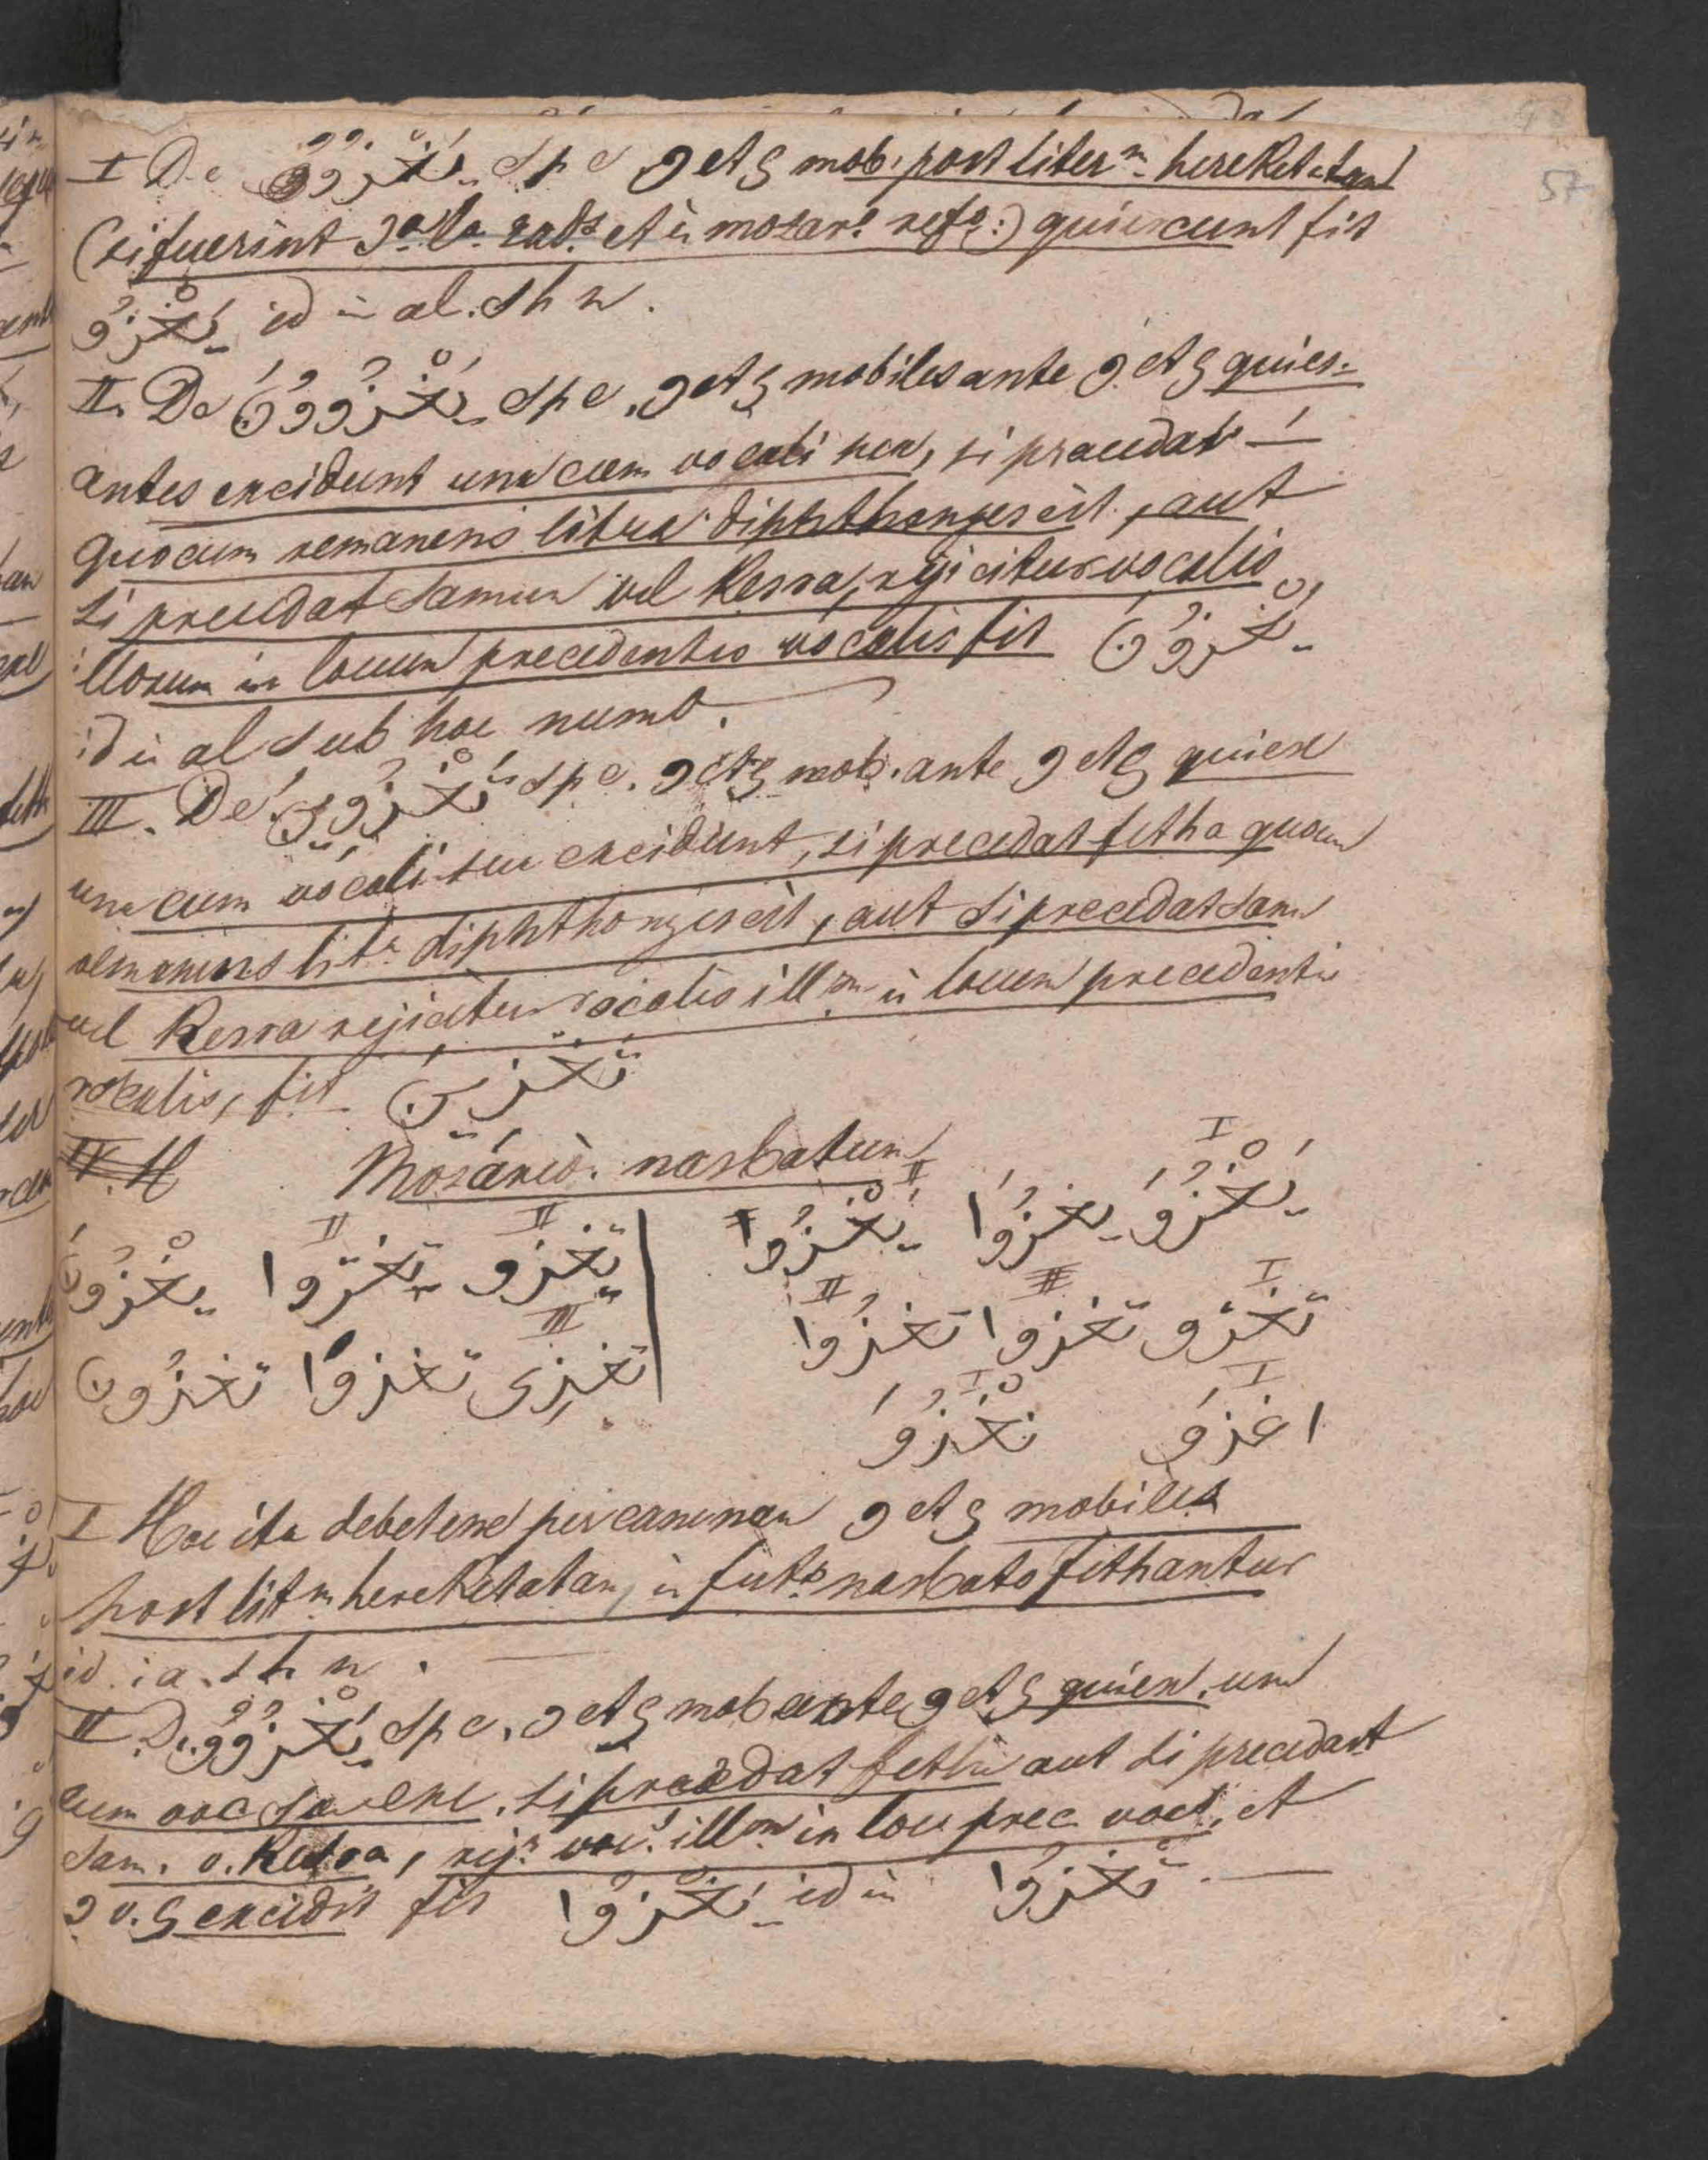 57
I De يَغْزُوُ s p c و et ي mob. post literm hereketatam
(si fuerint 3a la radx et in mozare refo:) quiescunt fit
يَغْزُو id in al. s h n.
II. De يَغْزُوُونَ s p c. و et ي mobiles ante و et ي quies-
antes excidunt una cum vocali sua, si praecedat —َ
quocum remanens litera diphthongescit, aut
si precedat damma vel kesra, rejicitur vocalis
illorum in locum precedentis vocalis fit يَغْزُونَ
id in al sub hoc numo.
III. De تَغْزُوِينَ s p c. و et ي mob. ante و et ي quiesc
una cum vocali sua excidunt, si precedat fetha quocum
remanens lita diphthongescit, aut si precedat dam
vel kesra rejicitur vocalis illm in locum precedentis
vocalis, fit تَغْزِينَ
Mozáreò. nasbatum
I II
يَغْزُوَ يغزُوَا يَغْزُوا
II II
تغزو تغزوا يغزُونَ
I II II
تغزو تغزوا تغزُوا
III
تغزِى تغزوا تغزُون
I I
اغزوَ نَغْزُوَ
I Hoc ita debet esse per canonem و et ي mobiles
post litm hereketatam, in futo nasbato fethantur
id i a. s h n. —
II. De يَغْزُوُو s p c. و et ي mob ante و et ي quiesc. una
cum voc sua exc. si precedat fetha aut si precedat
dam. v. kesra, rejr voc. illm in locu prec voct, et
و v. ي excidit fit يَغْزُوا id in تَغْزُوا. —